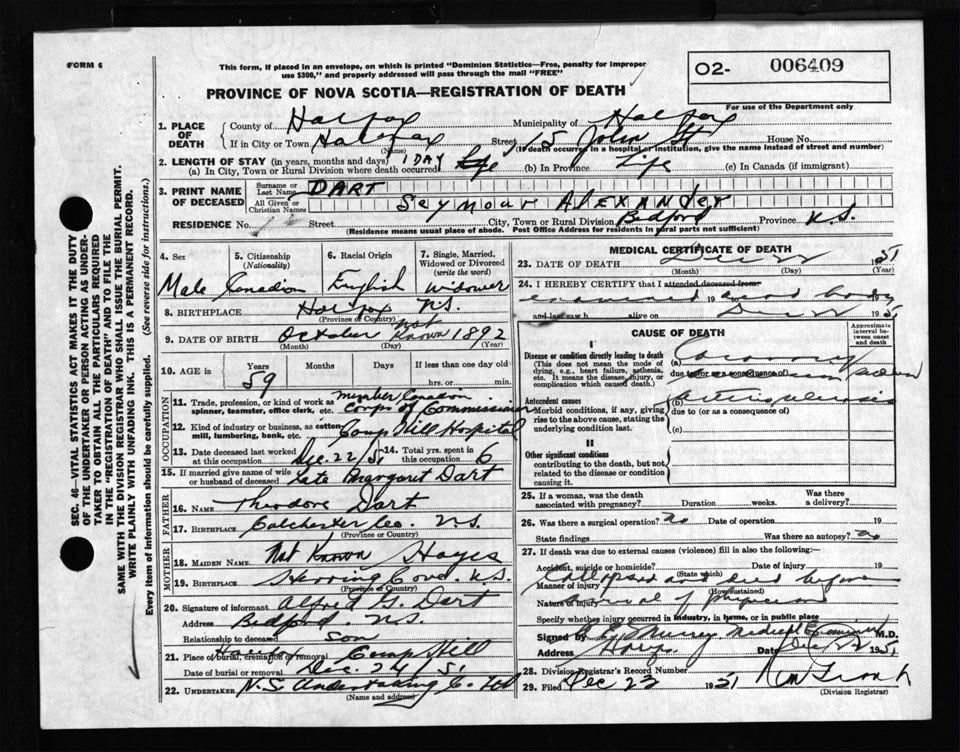 FORM 6
This form, if placed in an envelope, on which is printed "Dominion Statistics—Free, penalty for improper
use $300," and properly addressed will pass through the mail "FREE"
O2- 006409
PROVINCE OF NOVA SCOTIA—REGISTRATION OF DEATH
For use of the Department only
1. PLACE OF DEATH
County of Halifax Municipality of Halifax
If in City or Town Halifax Street 15 John St House No.
(Name) (If death occurred in a hospital or institution, give name instead of street and number)
2. LENGTH OF STAY (in years, months and days)
(a) In City, Town or Rural Division where death occurred 1 DAY (b) In Province Life (c) In Canada (if immigrant)
3. PRINT NAME OF DECEASED
Surname or Last Name DART
All Given or Christian Names SEYMOUR ALEXANDER
RESIDENCE No. Street City, Town or Rural Division Bedford Province N.S.
(Residence means usual place of abode. Post Office Address for residents in rural parts not sufficient)
4. Sex Male
5. Citizenship (Nationality) Canadian
6. Racial Origin English
7. Single, Married, Widowed or Divorced (write the word) Widower
8. BIRTHPLACE Halifax N.S.
(Province or Country)
9. DATE OF BIRTH October Not Known 1892
(Month) (Day) (Year)
10. AGE in Years 59 Months Days If less than one day old
hrs. or min.
OCCUPATION
11. Trade, profession or kind of work as spinner, teamster, office clerk, etc. member Canadian Corps of Commissioner
12. Kind of industry or business, as cotton mill, lumbering, bank, etc. Camp Hill Hospital
13. Date deceased last worked at this occupation Dec. 22/51 14. Total yrs. spent in this occupation 6
15. If married give name of wife or husband of deceased Late Margaret Dart
FATHER
16. NAME Theodore Dart
17. BIRTHPLACE Colchester Co. N.S.
(Province or Country)
MOTHER
18. MAIDEN NAME Not Known Hayes
19. BIRTHPLACE Herring Cove. N.S.
(Province or Country)
20. Signature of informant Alfred G. Dart
Address Bedford. N.S.
Relationship to deceased son
21. Place of burial, cremation or removal Halifax Camp Hill
Date of burial or removal Dec. 24/51
22. UNDERTAKER N.S. Undertaking Co. Ltd
(Name and address)
MEDICAL CERTIFICATE OF DEATH
23. DATE OF DEATH Dec 22 1951
(Month) (Day) (Year)
24. I HEREBY CERTIFY that I attended deceased from:
examined 19 dead body
and last saw h alive on Dec 22 1951
CAUSE OF DEATH
Approximate interval between onset and death
I
Disease or condition directly leading to death
(This does not mean the mode of dying, e.g., heart failure, asthenia, etc. It means the disease, injury, or complication which caused death.)
(a) Coronary
due to (or as a consequence of) sudden
Antecedent causes
Morbid conditions, if any, giving rise to the above cause, stating the underlying condition last.
(b) Arteriosclerosis
due to (or as a consequence of)
(c)
II
Other significant conditions
contributing to the death, but not related to the disease or condition causing it.
25. If a woman, was the death associated with pregnancy? Duration weeks. Was there a delivery?
26. Was there a surgical operation? no Date of operation 19
State findings Was there an autopsy? no
27. If death was due to external causes (violence) fill in also the following:—
Accident, suicide or homicide? Date of injury 19
(State which)
Manner of injury Collapsed and died before
(How sustained)
Nature of injury arrival of physician
Specify whether injury occurred in industry, in home, or in public place
Signed by Murray Medical Examiner M.D.
Address Halifax Date Dec 22 1951
28. Division Registrar's Record Number
29. Filed Dec 22 1951
(Division Registrar)
SEC. 46—VITAL STATISTICS ACT MAKES IT THE DUTY
OF THE UNDERTAKER OR PERSON ACTING AS UNDER-
TAKER TO OBTAIN ALL THE PARTICULARS REQUIRED
IN THE "REGISTRATION OF DEATH" AND TO FILE THE
SAME WITH THE DIVISION REGISTRAR WHO SHALL ISSUE THE BURIAL PERMIT.
WRITE PLAINLY WITH UNFADING INK. THIS IS A PERMANENT RECORD.
Every item of information should be carefully supplied. (See reverse side for instructions.)